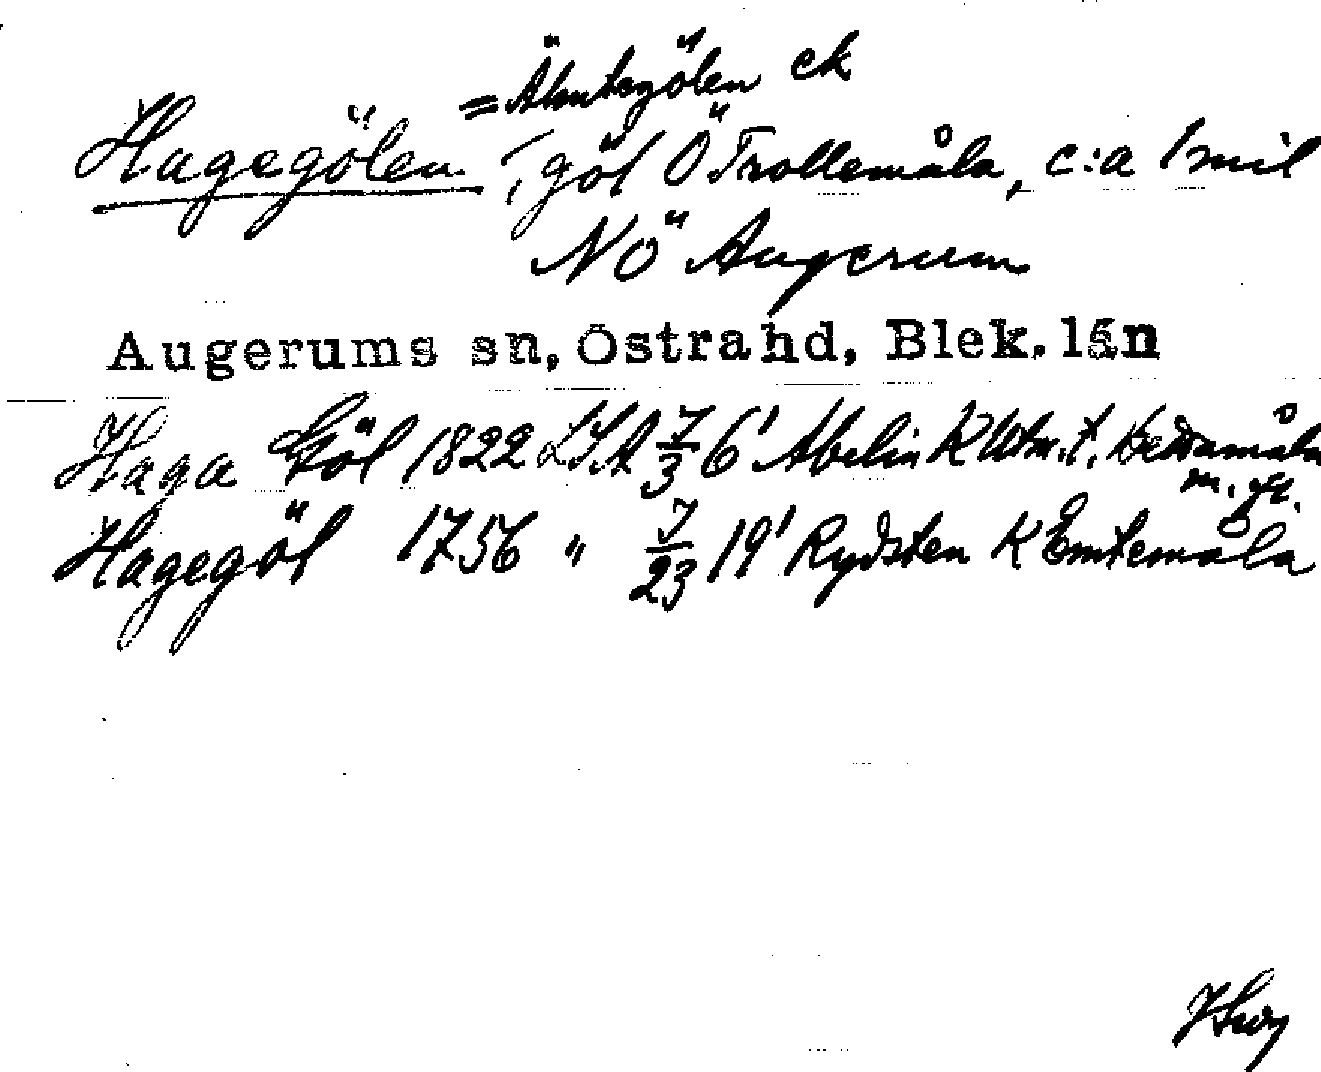 = Älmtegölen ek
Hagegölen, göl Ö Trollemåla, c:a 1 mil
NÖ Augerum
Augerums sn, Östra hd, Blek. län
Haga Göl 1822 LSA 7/3 6' Abelin K Utm. t.
m. fl.
Hagegöl 1756 " 7/23 19' Rydsten K Emtemåla